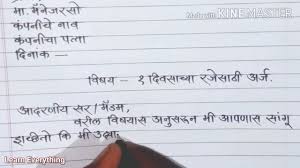 मा. मॅनेजरसो
कंपनीचे नाव
कंपनीचा पत्ता
दिनांक -
विषय - १ दिवसाच्या रजेसाठी अर्ज.
आदरणीय सर/मॅडम,
वरील विषयास अनुसरून मी आपणास सांगू
इच्छितो कि मी उद्या
Made with KINEMASTER
Learn Everything